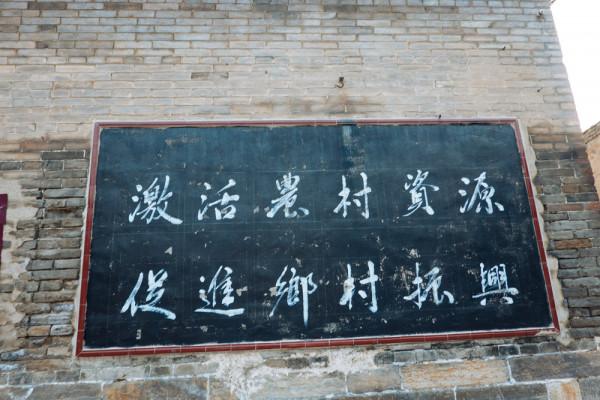 激活農村資源
促進鄉村振興